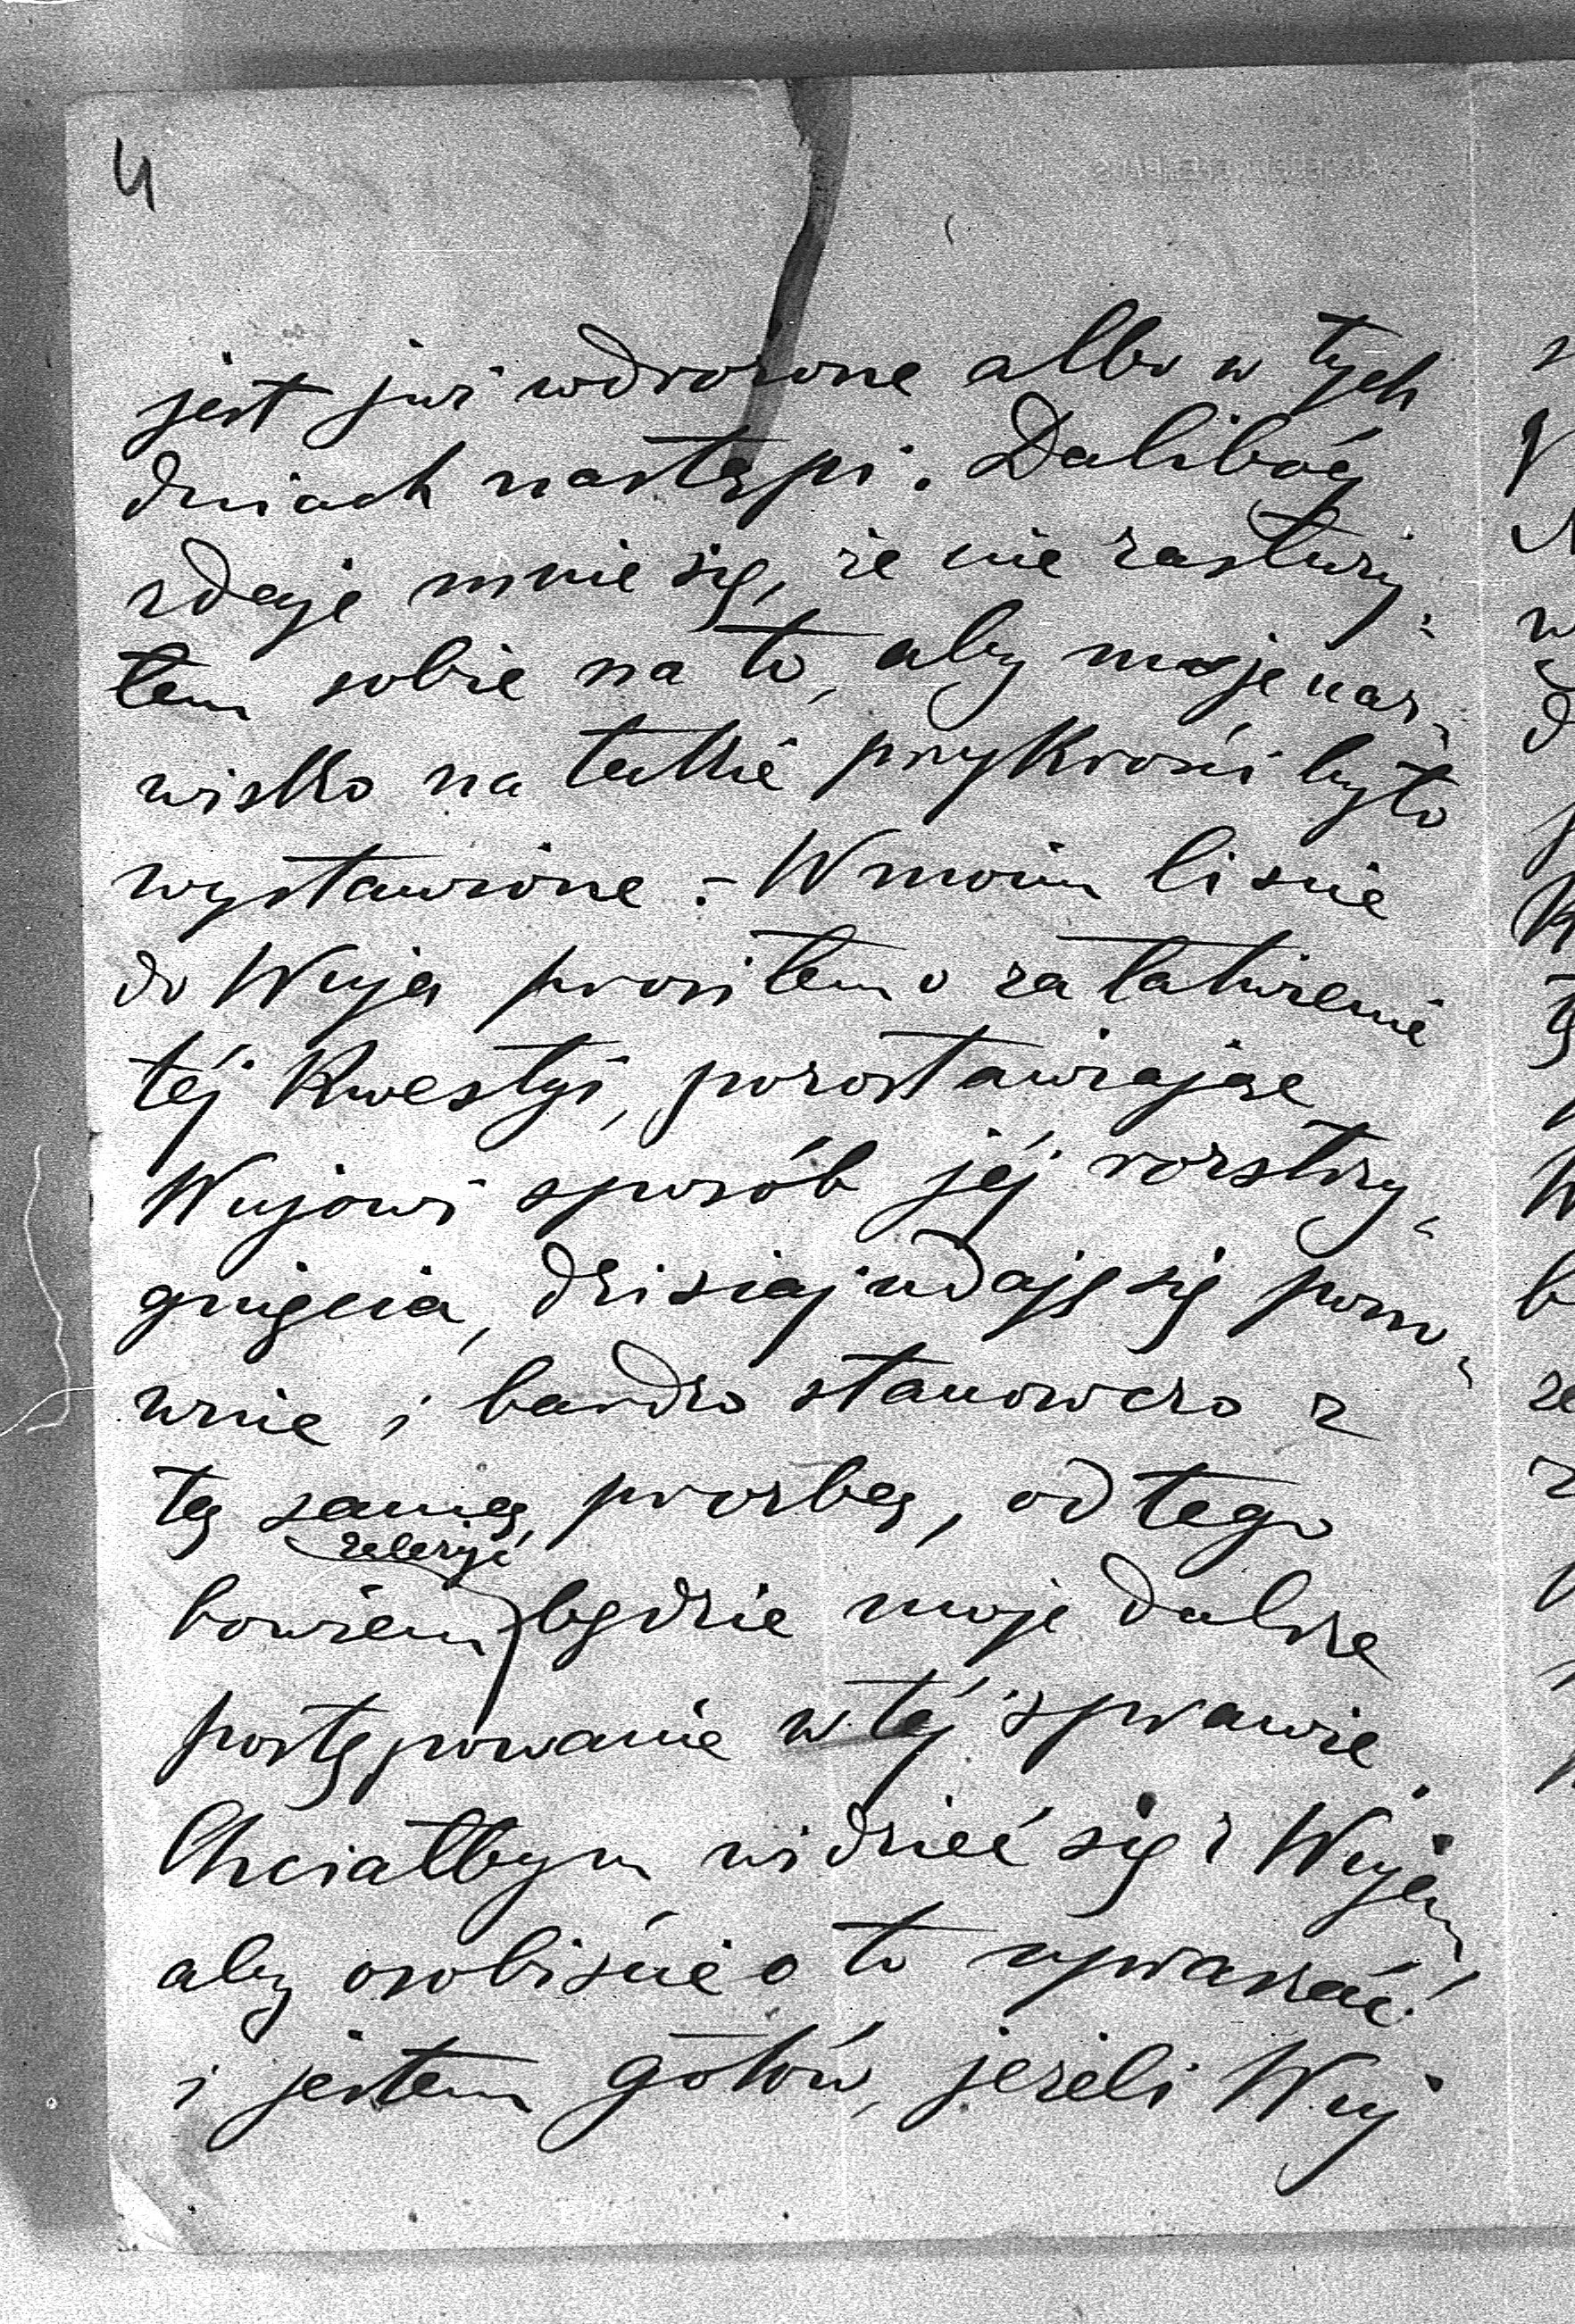 4
jest już wdrożone albo w tych
dniach nastąpi. Dalibóg
zdaje mnie się, że nie zasłuży-
łem sobie na to, aby moje naz-
wisko na takie przykrości było
wystawione. - W moim liście
do Wuja prosiłem o załatwienie
téj kwestyi, pozostawiając
Wujowi sposób jéj rozstrzy-
gnięcia, dzisiaj udaję się pono-
wnie i bardzo stanowczo z
tą samą prośbą, od tego
zależyć
bowiem będzie moje dalsze
postępowanie w téj sprawie.
Chciałbym widzieć się z Wujem,
aby osobiście o to upraszać
i jestem gotów, jeżeli Wuj